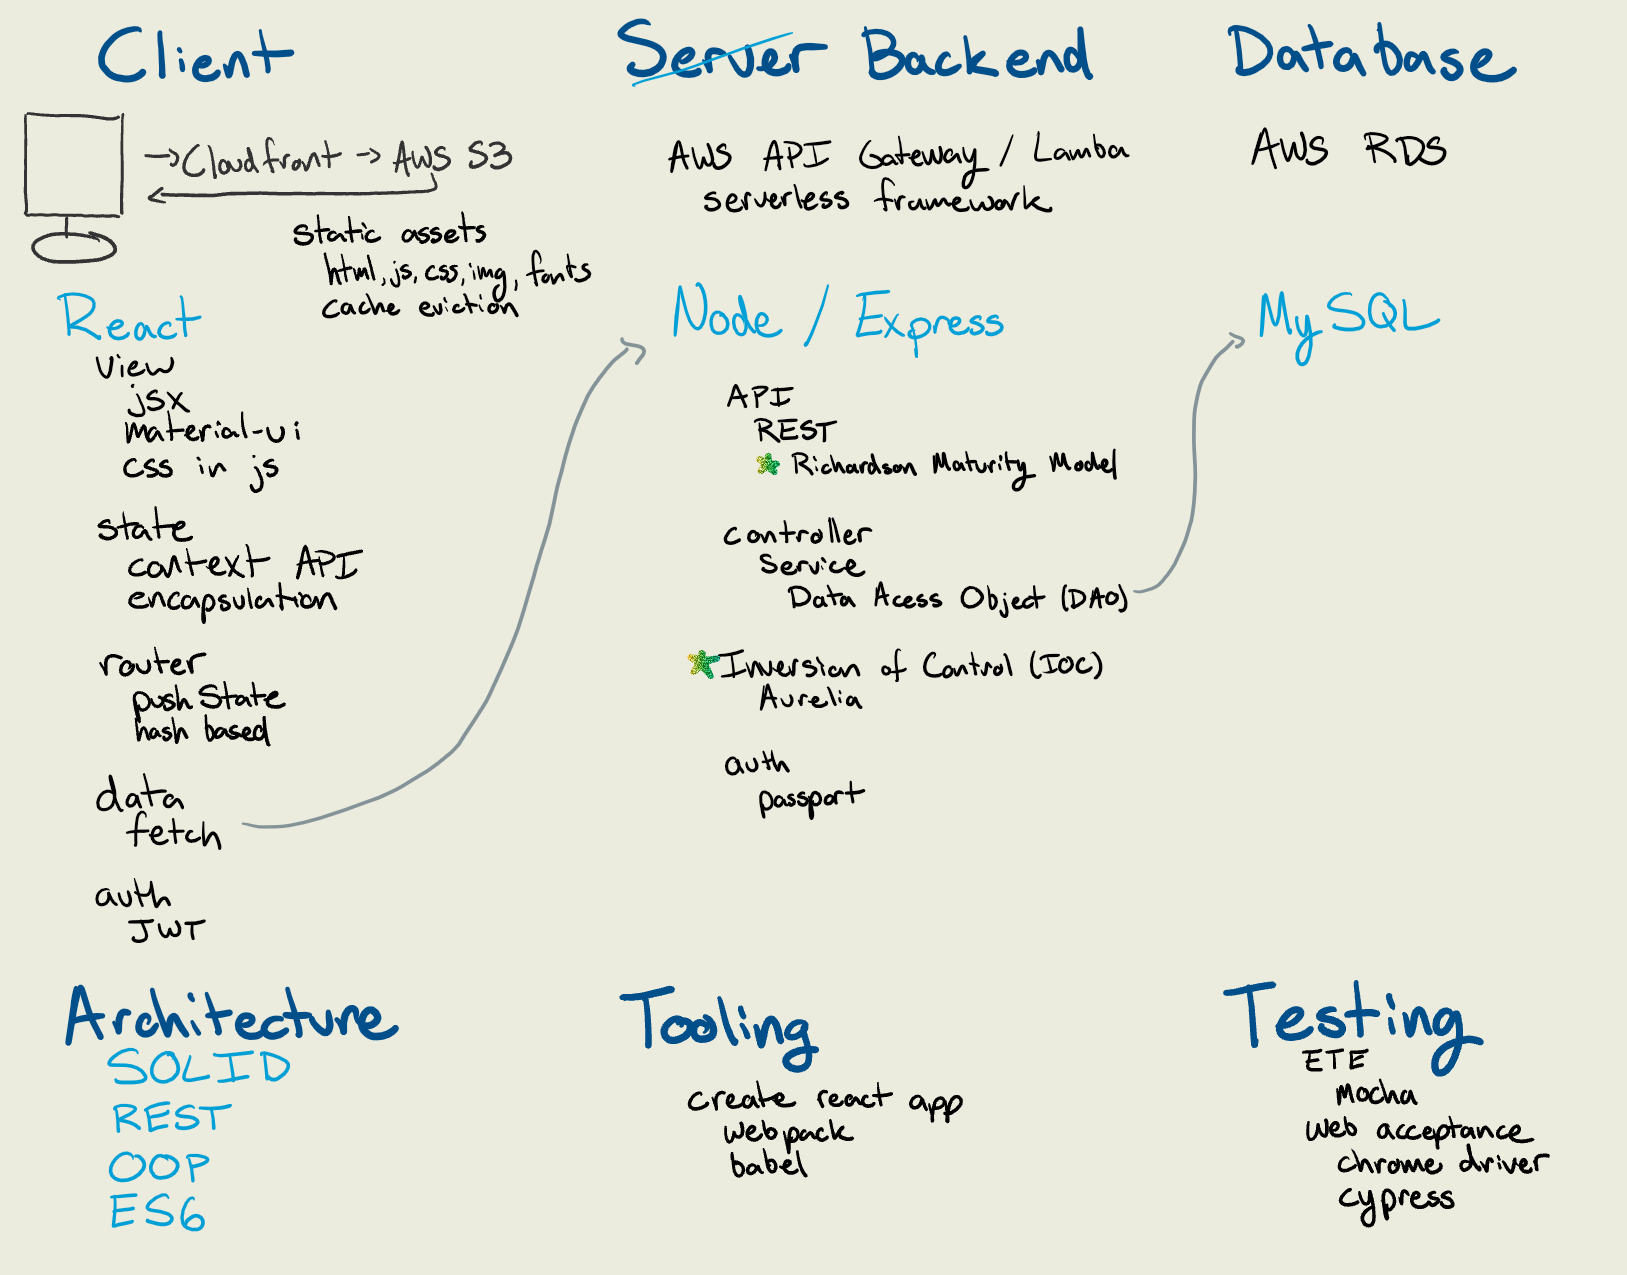 Client
→ Cloudfront → AWS S3
static assets
html, js, css, img, fonts
cache eviction
React
view
jsx
material-ui
css in js
state
context API
encapsulation
router
pushState
hash based
data
fetch
auth
JWT
Server Backend
AWS API Gateway / Lamba
serverless framework
Node / Express
API
REST
Richardson Maturity Model
controller
Service
Data Acess Object (DAO)
Inversion of Control (IOC)
Aurelia
auth
passport
Database
AWS RDS
MySQL
Architecture
SOLID
REST
OOP
ES6
Tooling
create react app
webpack
babel
Testing
ETE
Mocha
web acceptance
chrome driver
cypress